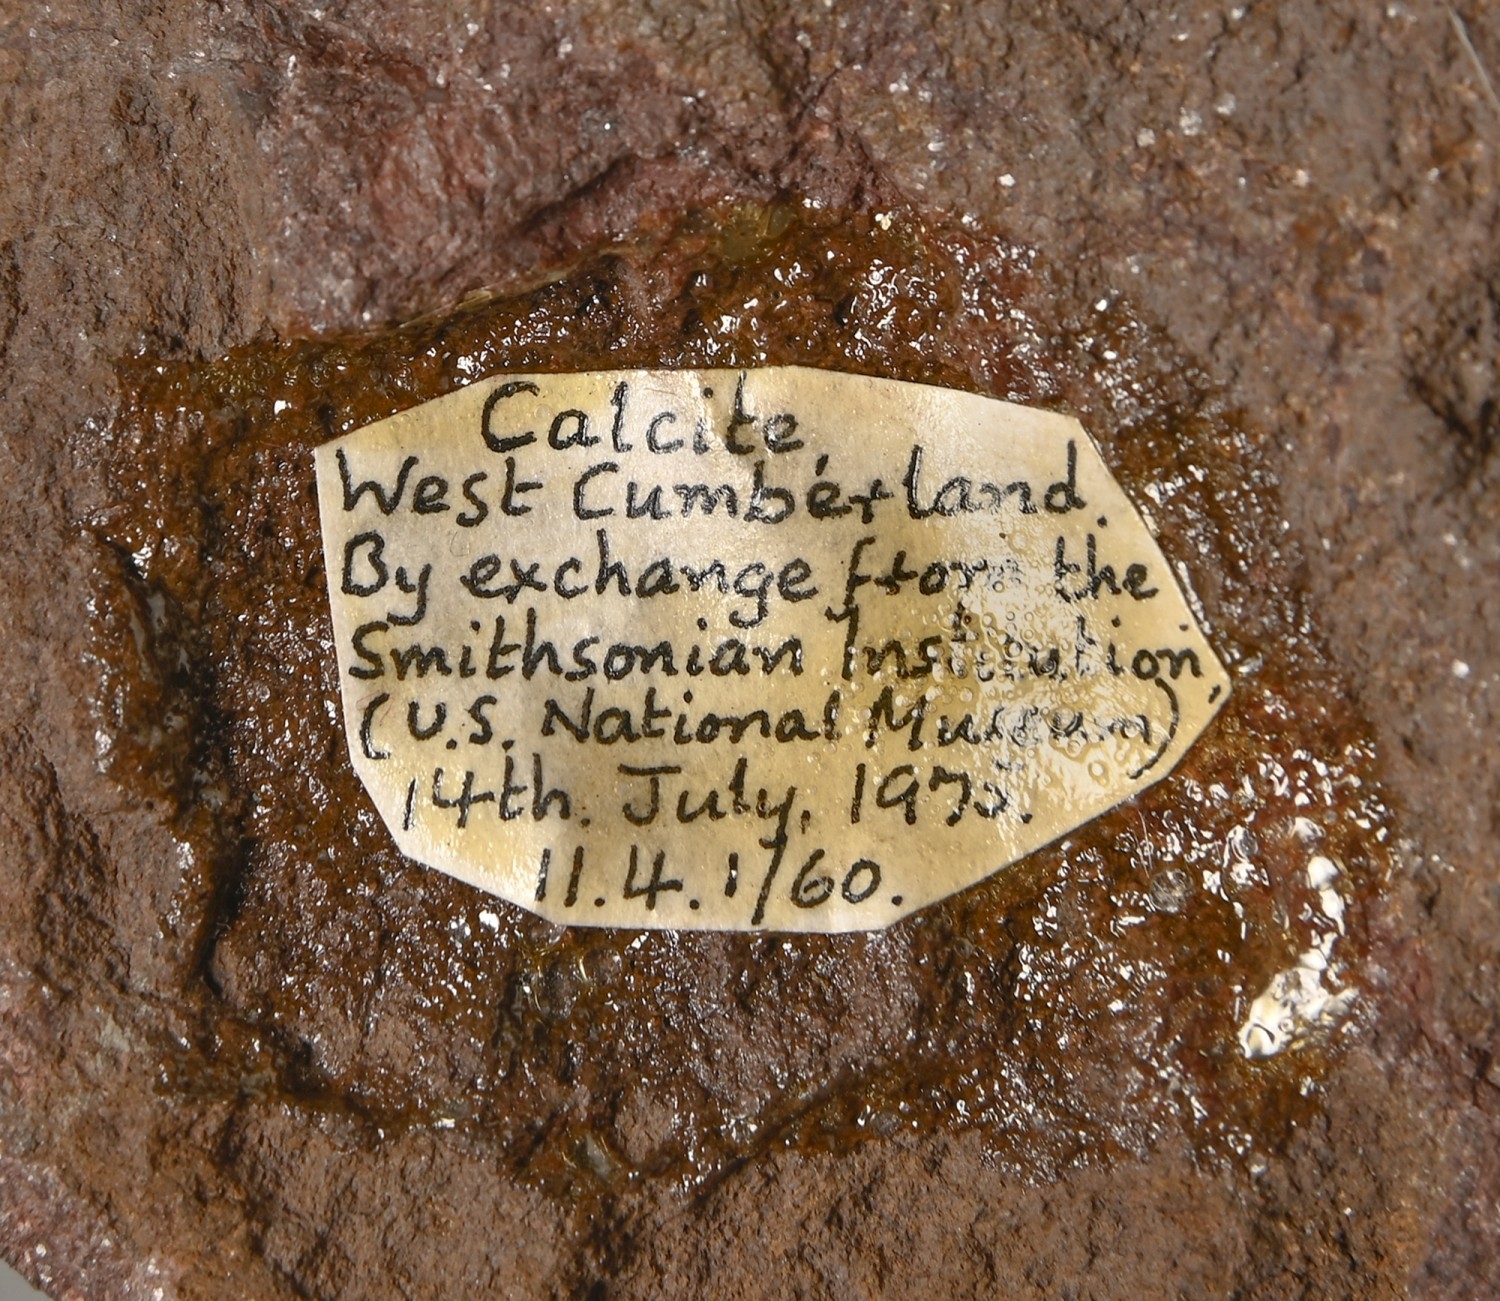 Calcite,
West Cumberland.
By exchange from the
Smithsonian Institution,
(U.S. National Museum)
14th. July,
11.4.1/60.